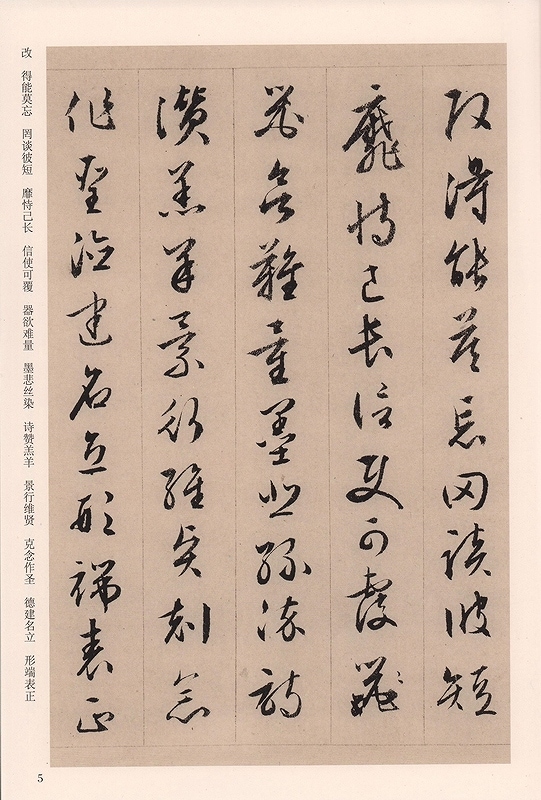 改得能莫忘罔談彼短
靡恃己長信使可覆器
器欲難量墨悲絲染詩
讚羔羊景行維賢剋念
作聖德建名立形端表正
改 得能莫忘 罔谈彼短 靡恃己长 信使可覆 器欲难量 墨悲丝染 诗赞羔羊 景行维贤 克念作圣 德建名立 形端表正
5